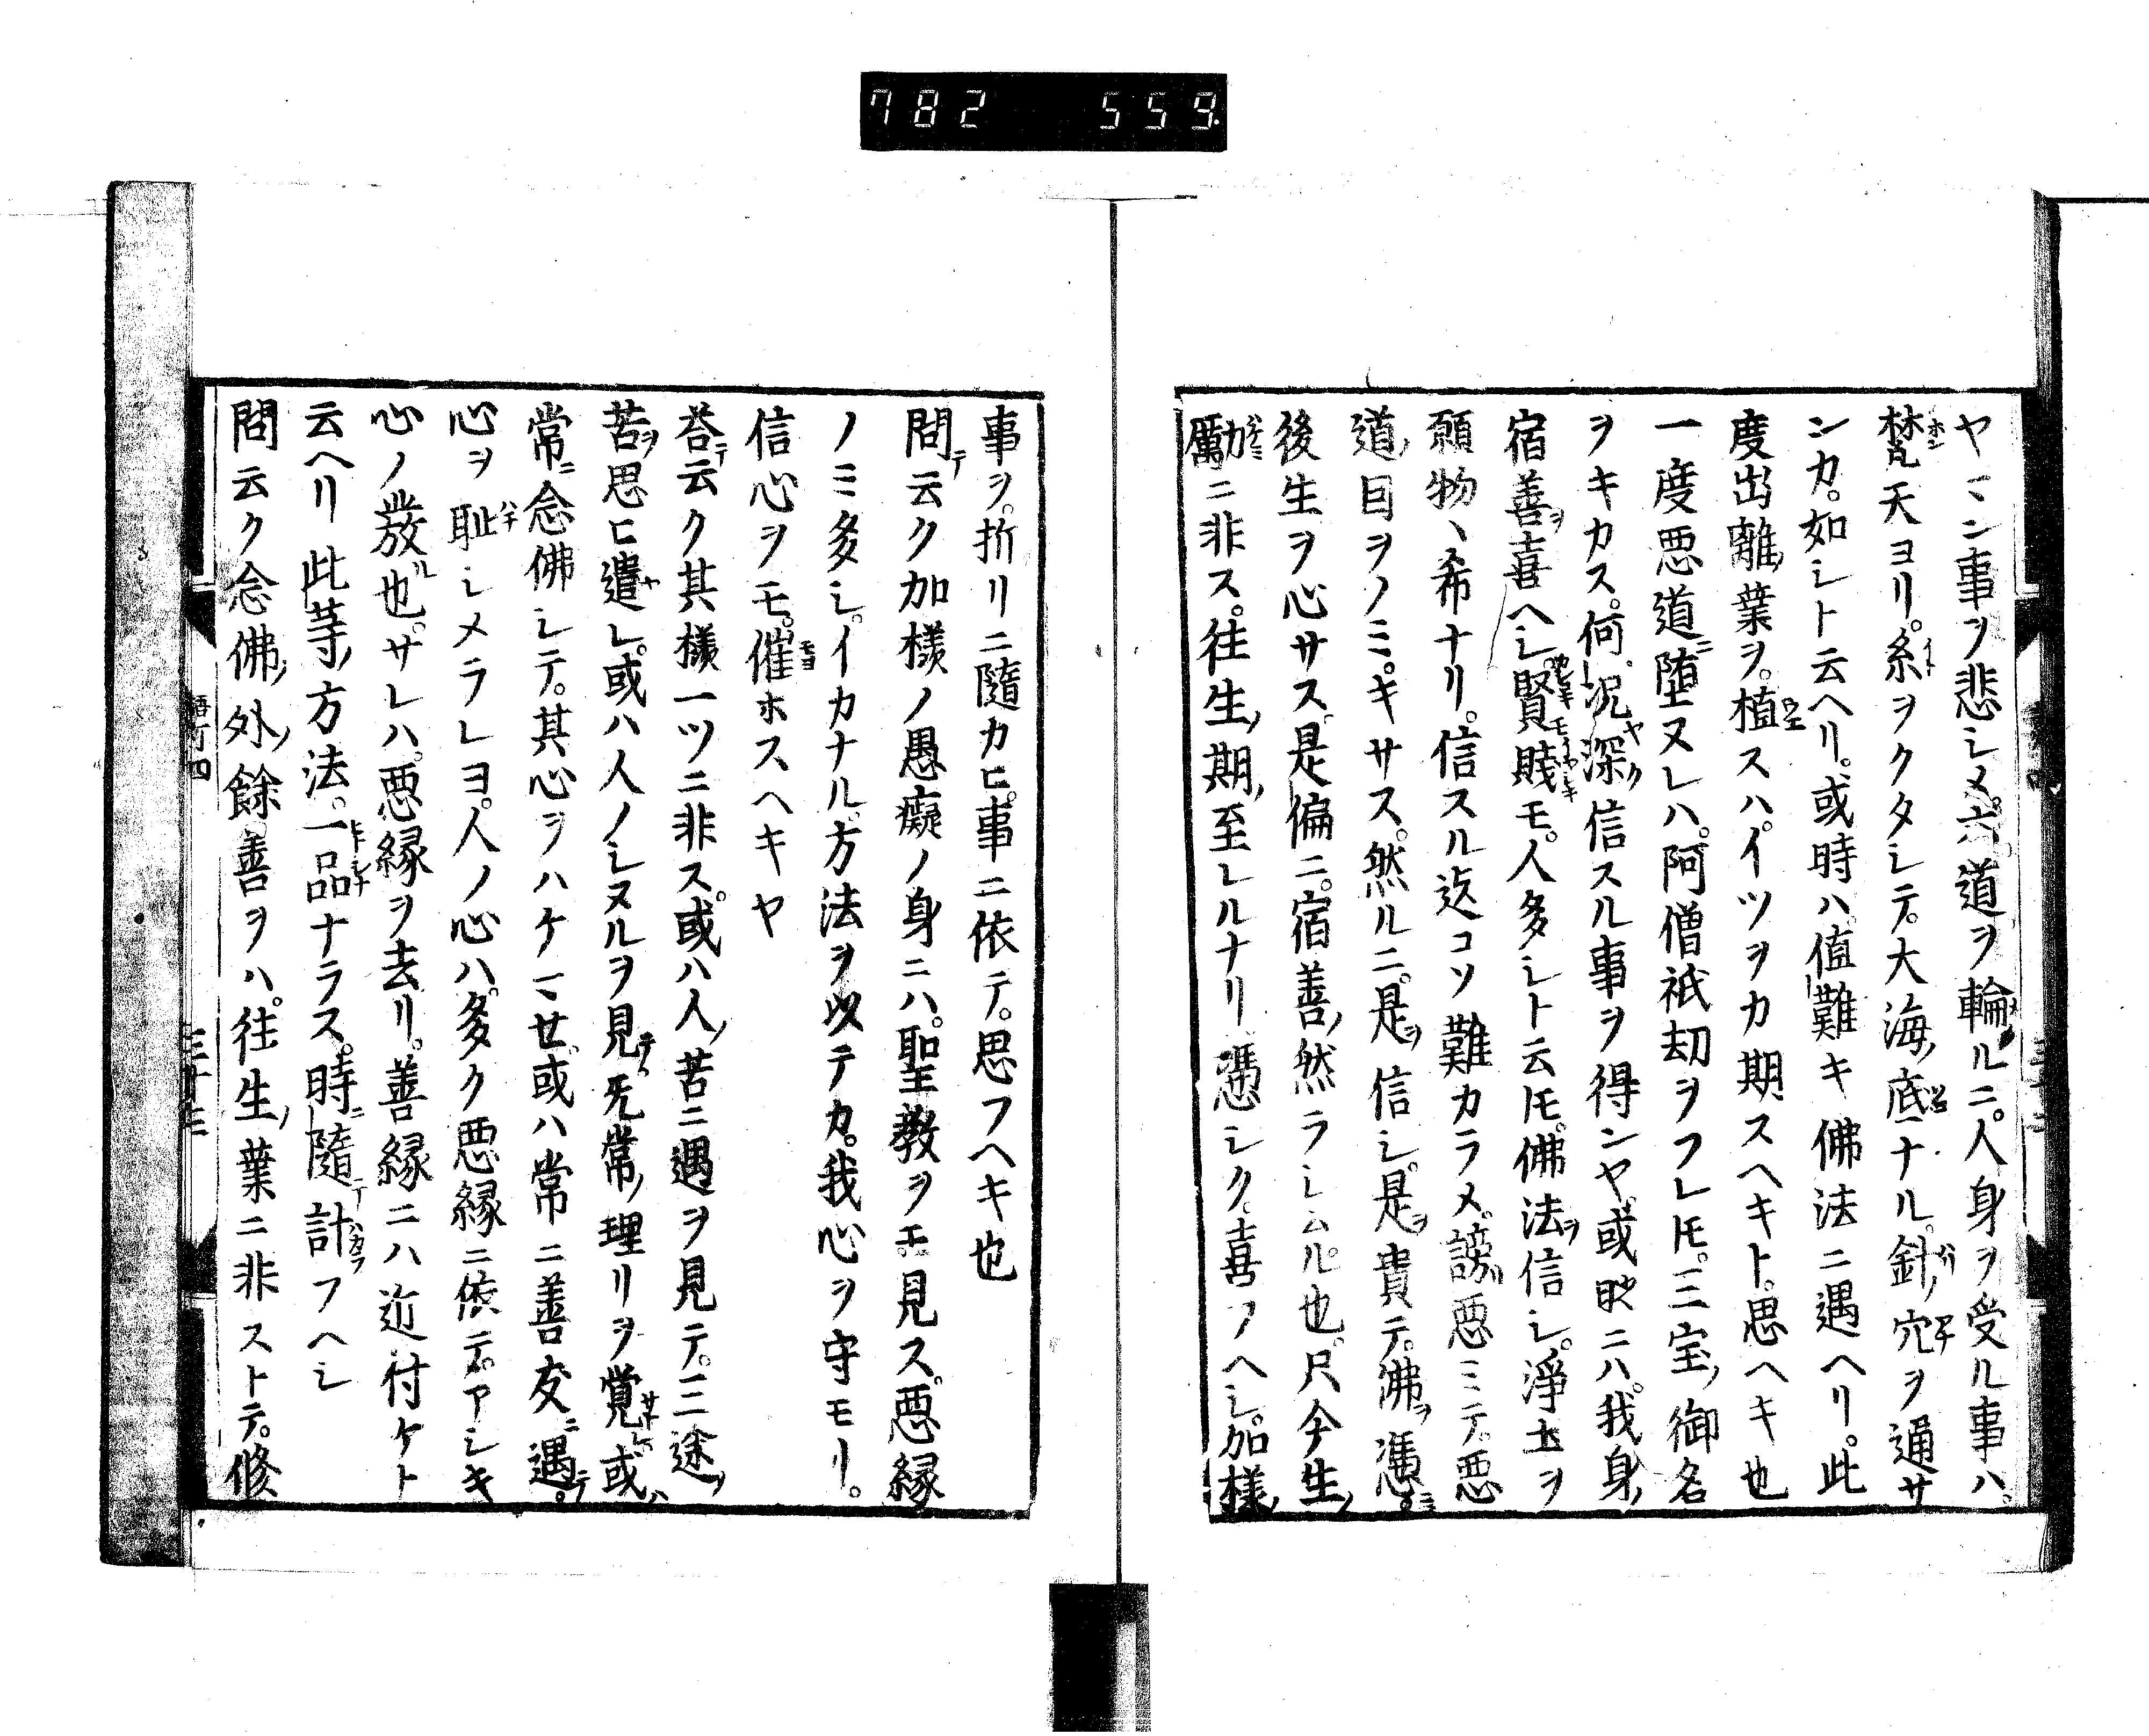 782 559
ヤマン事ヲ悲シメ。六道ヲ輪ルニ。人身ヲ受ル事ハ。
梵天ヨリ。糸ヲクタシテ。大海ノ底ナル。針ノ穴ヲ通サ
ンカ。如シト云ヘリ。或時ハ。値難キ佛法ニ遇ヘリ。此
度出離ノ業ヲ。植スハ。イツヲカ期スヘキト。思ヘキ也
一度悪道ニ堕ヌレハ。阿僧祇劫ヲフレトモ。三宝ノ御名
ヲキカス。何況ヤ深ク信スル事ヲ得ンヤ。或時ニハ。我身ノ
宿善ヲ喜ヘシ。賢モ賤モ。人多シト云トモ。佛法ヲ信シ。淨土ヲ
願物ハ希ナリ。信スル迄コソ難カラメ。謗リ悪ミテ。悪
道ノ因ヲノミ。キサス。然ルニ。是ヲ信シ。是ヲ貴テ。佛ヲ憑ミ。
後生ヲ心サス。是偏ニ。宿善ノ然ラシムル也。只今生ノ
勵ニ非ス。往生ノ期ノ至レルナリ憑シク。喜フヘシ。加樣ノ
事ヲ。折リニ隨カヒ。事ニ依テ。思フヘキ也
問テ云ク加樣ノ愚癡ノ身ニハ。聖教ヲモ見ス。悪縁
ノミ多シ。イカナル。方法ヲ以テカ。我心ヲ守モリ。
信心ヲモ。催ホスヘキヤ
答テ云ク其樣一ツニ非ス。或ハ人ノ苦ニ遇ヲ見テ。三途ノ
苦ヲ思ヒ遣レ。或ハ人ノシヌルヲ見テ。无常ノ理リヲ覚レ。或ハ
常ニ念佛シテ。其心ヲハケマセ。或ハ常ニ善友ニ遇テ。
心ヲ耻シメラレヨ。人ノ心ハ。多ク悪縁ニ依テ。アシキ
心ノ發ル也。サレハ。悪縁ヲ去リ。善縁ニハ近付ケト
云ヘリ此等ノ方法。一品ナラス。時ニ隨テ計フヘシ
問云ク念佛ノ外ノ餘善ヲハ。往生ノ業ニ非ストテ。修